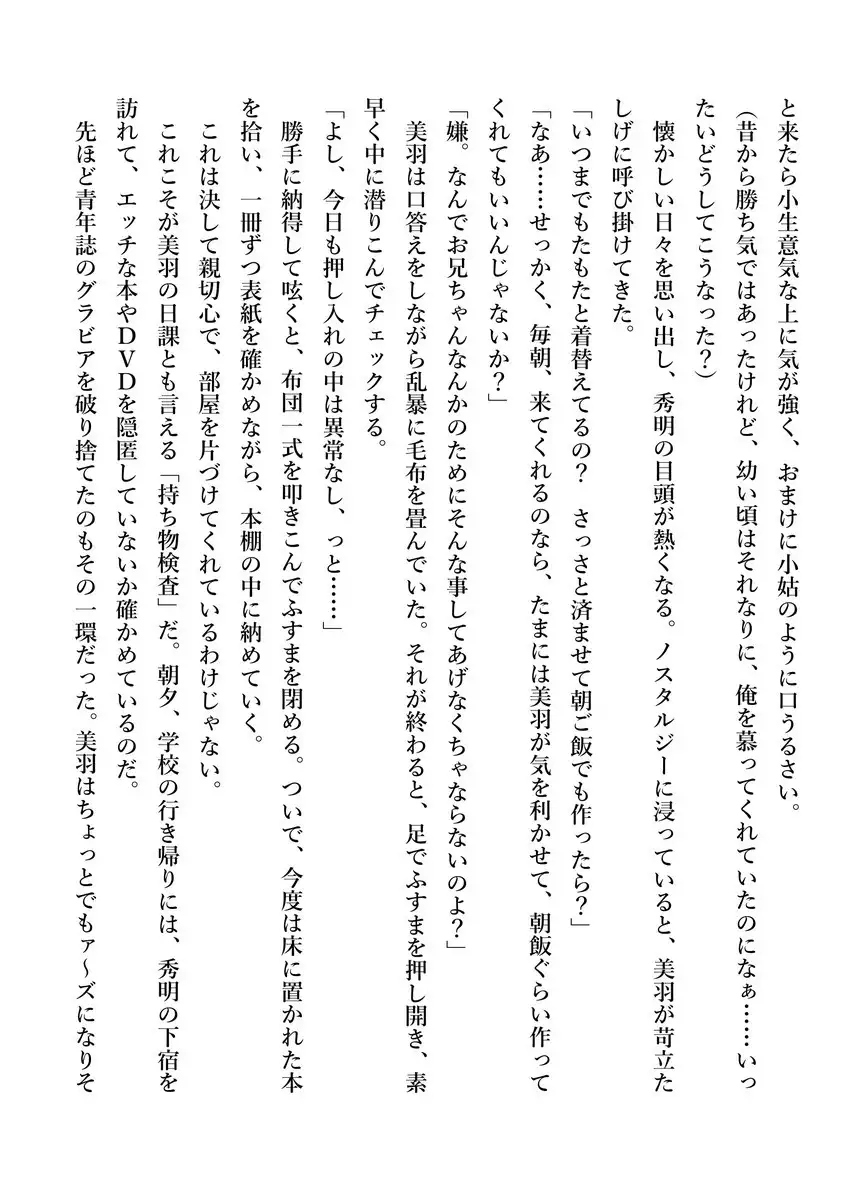 と来たら小生意気な上に気が強く、おまけに小姑のように口うるさい。
(昔から勝ち気ではあったけれど、幼い頃はそれなりに、俺を慕ってくれていたのになぁ……いっ
たいどうしてこうなった?)
懐かしい日々を思い出し、秀明の目頭が熱くなる。ノスタルジーに浸っていると、美羽が苛立た
しげに呼び掛けてきた。
「いつまでもたもたと着替えてるの? さっさと済ませて朝ご飯でも作ったら?」
「なあ……せっかく、毎朝、来てくれるのなら、たまには美羽が気を利かせて、朝飯ぐらい作って
くれてもいいんじゃないか?」
「嫌。なんでお兄ちゃんなんかのためにそんな事してあげなくちゃならないのよ?」
美羽は口答えをしながら乱暴に毛布を畳んでいた。それが終わると、足でふすまを押し開き、素
早く中に潜りこんでチェックする。
「よし、今日も押し入れの中は異常なし、っと……」
勝手に納得して呟くと、布団一式を叩きこんでふすまを閉める。ついで、今度は床に置かれた本
を拾い、一冊ずつ表紙を確かめながら、本棚の中に納めていく。
これは決して親切心で、部屋を片づけてくれているわけじゃない。
これこそが美羽の日課とも言える「持ち物検査」だ。朝夕、学校の行き帰りには、秀明の下宿を
訪れて、エッチな本やDVDを隠匿していないか確かめているのだ。
先ほど青年誌のグラビアを破り捨てたのもその一環だった。美羽はちょっとでもァ〜ズになりそ